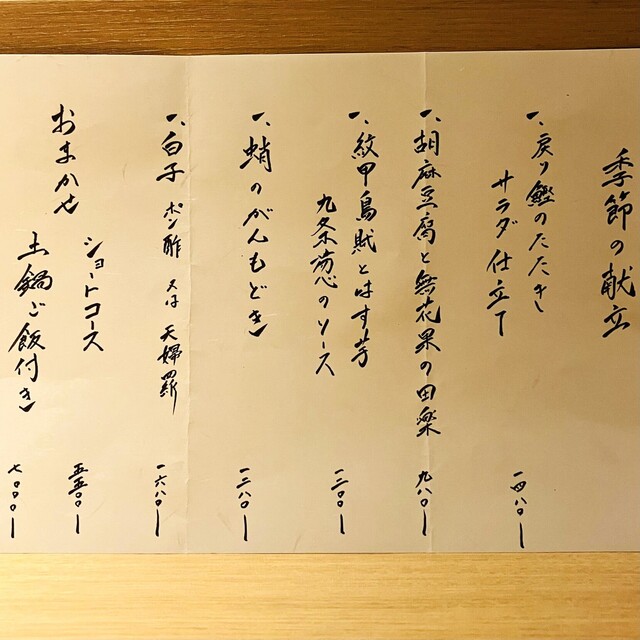 季節の献立
一、戻り鰹のたたき
サラダ仕立て
一四八〇ー
一、胡麻豆腐と無花果の田楽
九八〇ー
一、紋甲烏賊とはす芋
九条葱のソース
一二〇〇ー
一、蛸のがんもどき
一二八〇ー
一、白子 ポン酢 又は 天婦羅
一六八〇ー
おまかせ
ショートコース
五五〇〇ー
土鍋ご飯付き
七〇〇〇ー